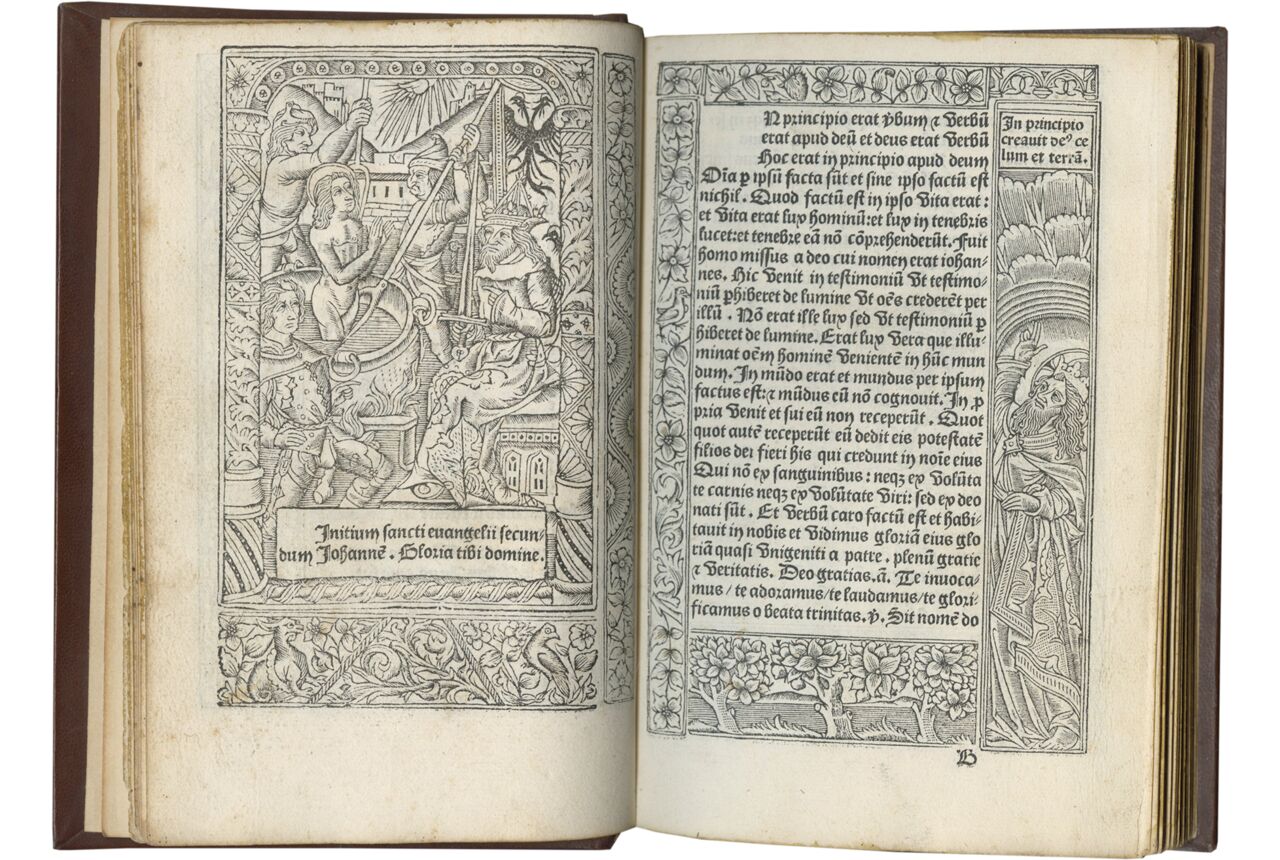 Initium sancti evangelii secun-
dum Johannē. Gloria tibi domine.
N principio erat v̄bum ⁊ Verbū
erat apud deū et deus erat Verbū
Hoc erat in principio apud deum
Oīa ꝑ ipsū facta sūt et sine ipso factū est
nichil. Quod factū est in ipso vita erat:
et vita erat lux hominū: et lux in tenebris
lucet: et tenebre eā nō cōprehenderūt. Fuit
homo missus a deo cui nomen erat iohan-
nes. Hic venit in testimoniū vt testimo-
niū ꝑhiberet de lumine vt oēs crederēt per
illū. Nō erat ille lux sed vt testimoniū ꝑ
hiberet de lumine. Erat lux vera que illu-
minat oēm hominē venientē in hūc mun
dum. In mūdo erat et mundus per ipsum
factus est: ⁊ mūdus eū nō cognouit. In ꝓ
pria venit et sui eū non receperūt. Quot
quot autē receperūt eū dedit eis potestatē
filios dei fieri his qui credunt in noīe eius
Qui nō ex sanguinibus: neqꝫ ex volūta
te carnis neqꝫ ex volūtate viri: sed ex deo
nati sūt. Et verbū caro factū est et habi-
tauit in nobis et vidimus gloriā eius glo
riā quasi vnigeniti a patre. plenū gratie
⁊ veritatis. Deo gratias. ā. Te inuoca-
mus/te adoramus/te laudamus/te glori-
ficamus o beata trinitas. ℣. Sit nomē do
B
In principio
creavit deꝰ ce
lum et terrā.